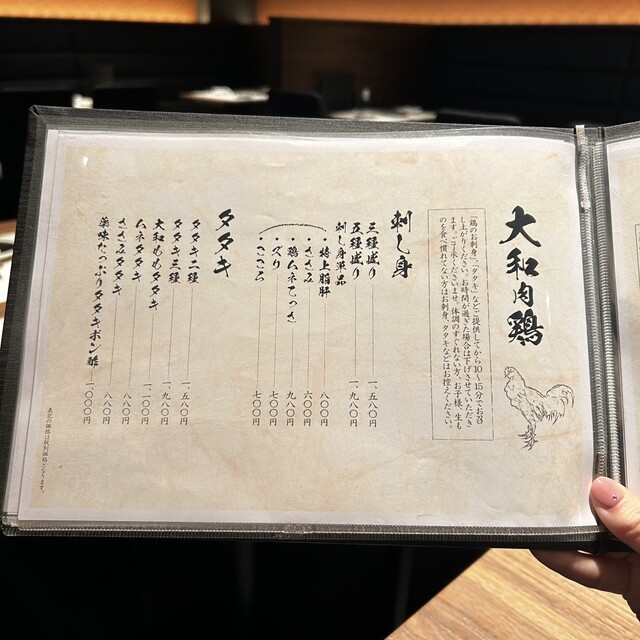 大和肉鶏
「鶏のお刺身」「タタキ」などご提供してから10～15分でお召
し上がりください。お時間が過ぎた場合は下げさせていただき
ます。ご了承くださいませ。体調のすぐれない方、お子様、生も
のを食べ慣れてない方はお刺身、タタキなどはお控えください。
刺し身
三種盛り 一、五八〇円
五種盛り 一、九八〇円
刺し身単品
・特上脂肝 八〇〇円
・ささみ 六〇〇円
・鶏ムネユッケ 九八〇円
・ズリ 七〇〇円
・こころ 七〇〇円
タタキ
タタキ二種 一、五八〇円
タタキ三種 一、九八〇円
大和ももタタキ 一、一〇〇円
ムネタタキ 八八〇円
ささみタタキ 八八〇円
薬味たっぷりタタキポン酢 一、〇〇〇円
表記の価格は税抜価格となります。